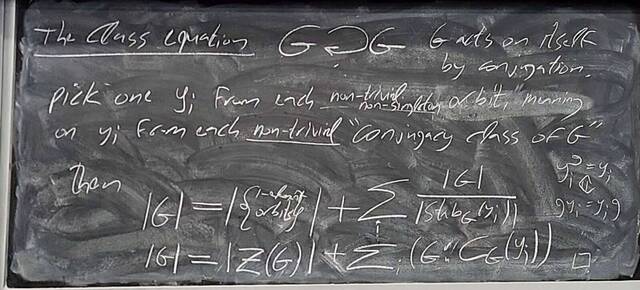 The Class equation G ⟲ G G acts on itself
by conjugation.
pick one yᵢ from each non-trivial non-singleton orbit, meaning
on yᵢ from each non-trivial "conjugacy class of G"
Then
|G| = |{1-element orbits}| + Σᵢ |G| / |Stab_G(yᵢ)|
yᵢᵍ = yᵢ
⇕
gyᵢ = yᵢg
|G| = |Z(G)| + Σᵢ (G : C_G(yᵢ)) □